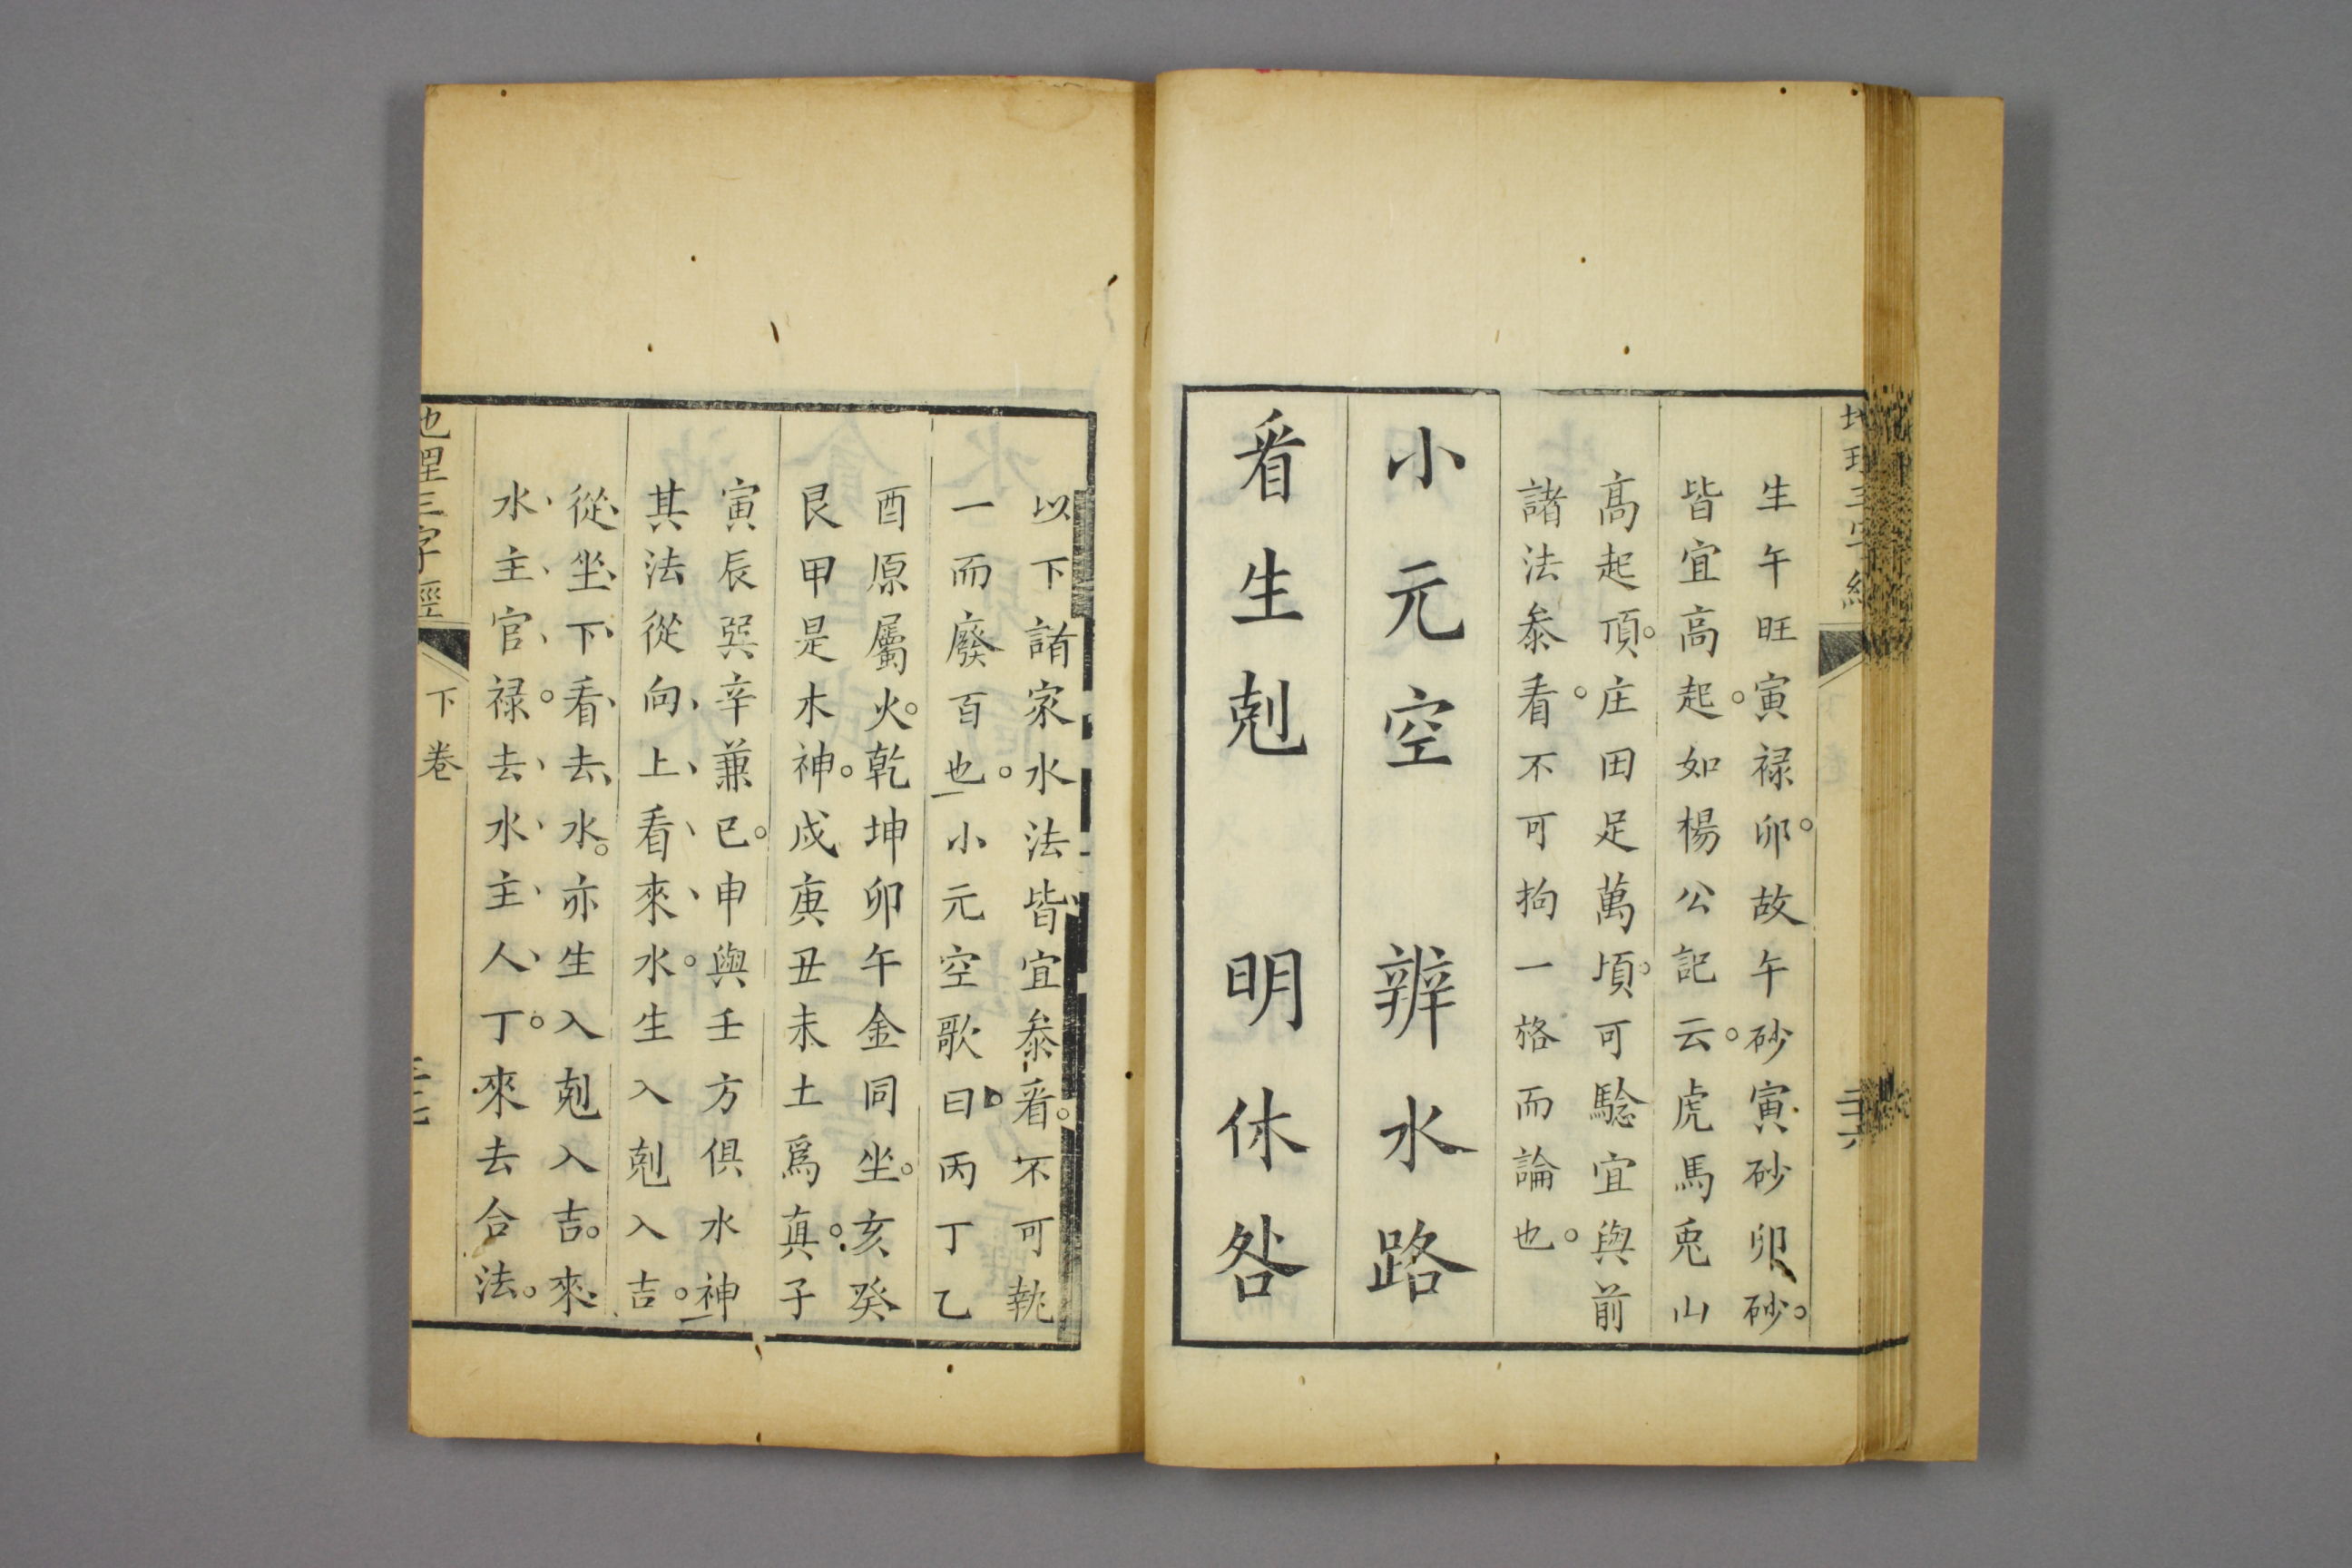 生午旺寅禄卯故午砂寅砂卯砂。
皆宜高起。如楊公記云。虎馬兎山
高起頂。庄田足萬頃。可騐宜與前
諸法叅看。不可拘一格而論也。
小元空　辨水路
看生剋　明休咎
以下諸家水法皆宜叅看。不可執
一而廢百也。小元空歌曰。丙丁乙
酉原屬火。乾坤卯午金同坐。亥癸
艮甲是木神。戍庚丑未土爲真。子
寅辰巽辛兼已。申與壬方俱水神
其法從向上看來水。生入剋入吉。
從坐下看去水。亦生入剋入吉。來
水主官禄。去水主人丁。來去合法。
地理三字經
下卷